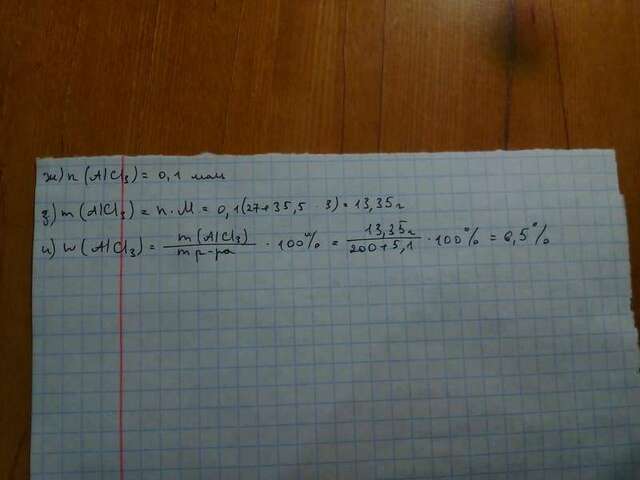 ж) n (AlCl₃) = 0,1 моль
з) m (AlCl₃) = n · M = 0,1(27+35,5 · 3) = 13,35г
и) w (AlCl₃) = m(AlCl₃) / m р-ра · 100% = 13,35г / 200+5,1 · 100% = 6,5%